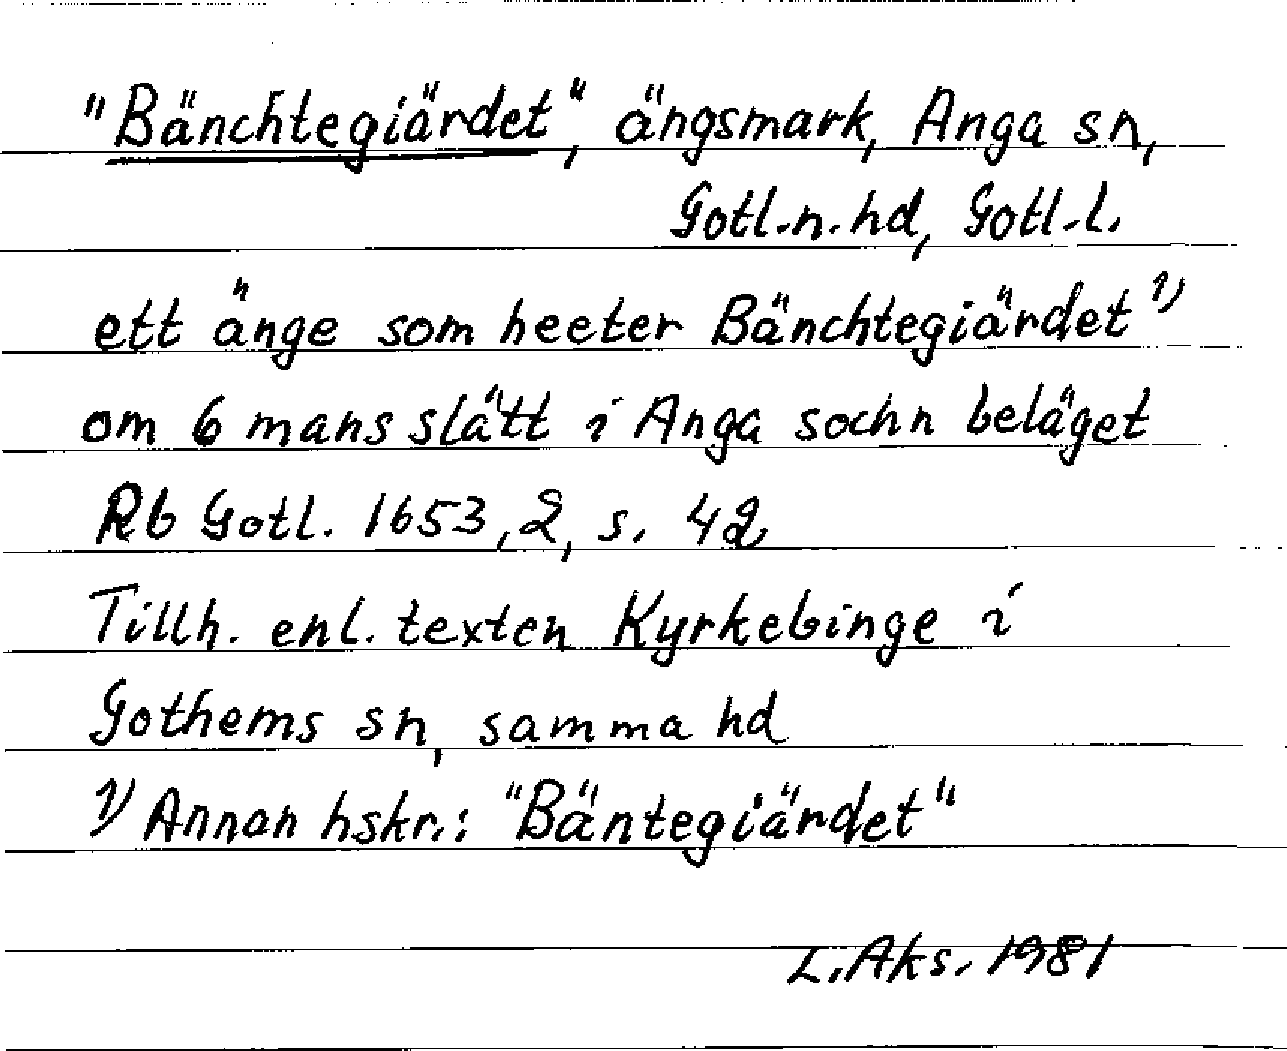 "Bänchtegiärdet", ängsmark, Anga sn,
Gotl.n.hd, Gotl.l.
ett änge som heeter Bänchtegiärdet 1)
om 6 mans slätt i Anga sochn beläget
Rb Gotl. 1653,2, s. 42
Tillh. enl. texten Kyrkebinge i
Gothems sn, samma hd
1) Annan hskr.: "Bäntegiärdet"
L. Aks. 1981